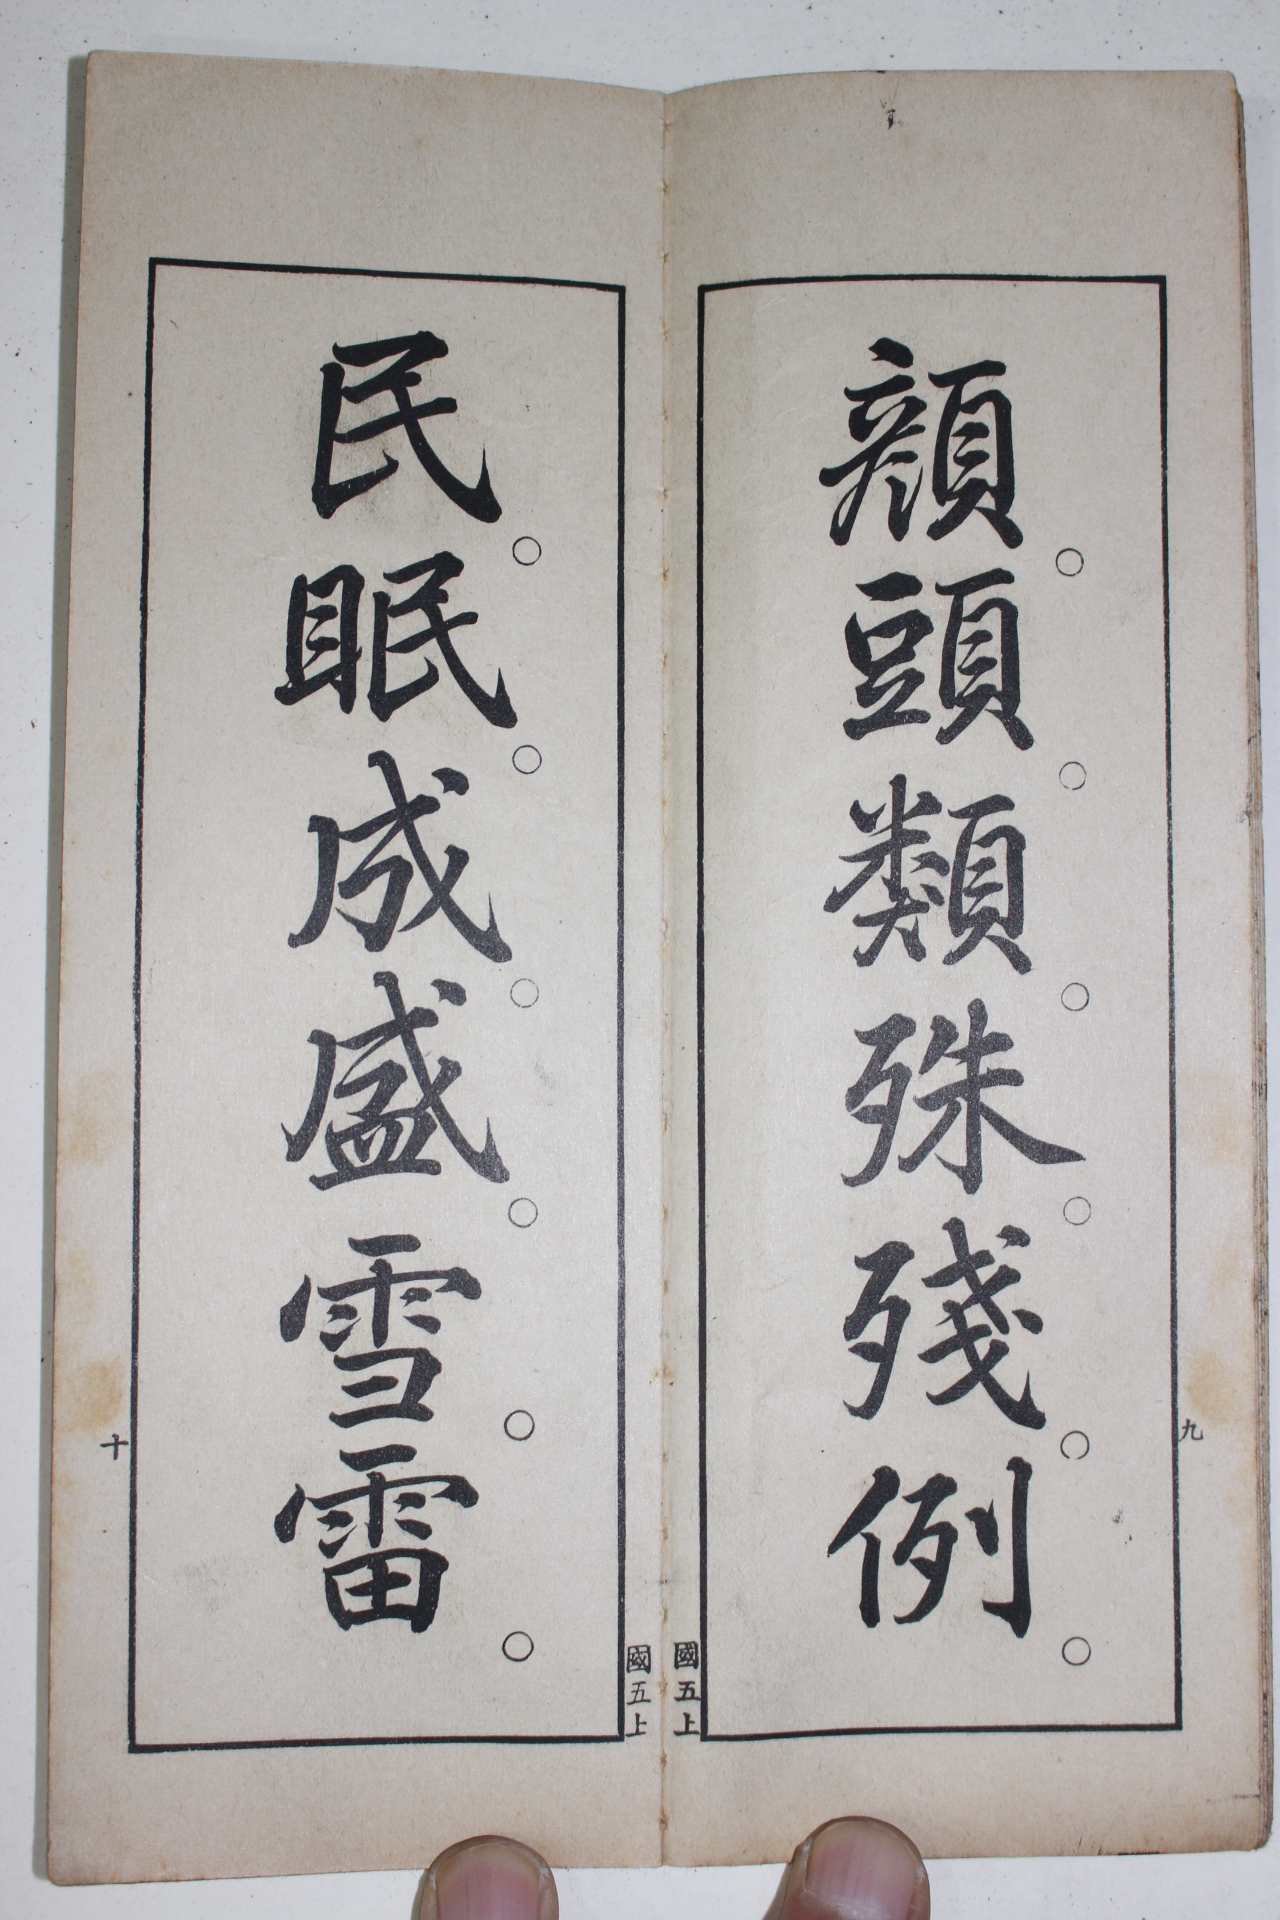 顔。頭。類。殊。殘。例。
九
國五上
民。眠。成。盛。雪。雷。
十
國五上